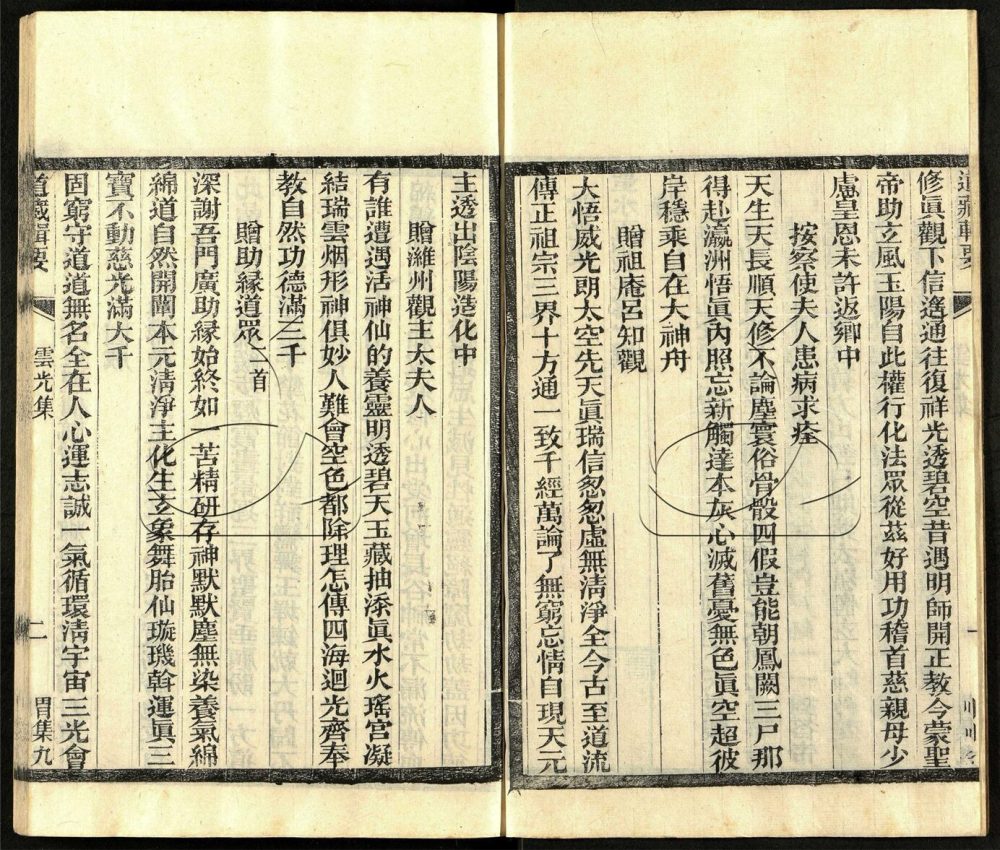 道藏輯要
修眞觀下信遙通往復祥光透碧空昔遇明師開正教今蒙聖
帝助玄風玉陽自此權行化法眾從茲好用功稽首慈親母少
慮皇恩未許返鄉中
按察使夫人患病求痊
天生天長順天修不論塵寰俗骨骰四假豈能朝鳳闕三尸那
得赴瀛洲悟眞內照忘新觸達本灰心滅舊憂無色眞空超彼
岸穩乘自在大神舟
贈祖庵呂知觀
大悟威光朗太空先天眞瑞信怱怱虛無淸淨全今古至道流
傳正祖宗三界十方通一致千經萬論了無窮忘情自現天元
主透出陰陽造化中
贈濰州觀主太夫人
有誰遭遇活神仙的養靈明透碧天玉藏抽添眞水火瑤宮凝
結瑞雲烟形神俱妙人難會空色都除理怎傳四海迴光齊奉
教自然功德滿三千
贈助緣道眾一首
深謝吾門廣助緣始終如一苦精研存神默默塵無染養氣綿
綿道自然開闡本元淸淨主化生玄象舞胎仙璇璣斡運眞三
寶不動慈光滿大千
固窮守道道無名全在人心運志誠一氣循環淸宇宙三光會
道藏輯要 雲光集 二 胃集九